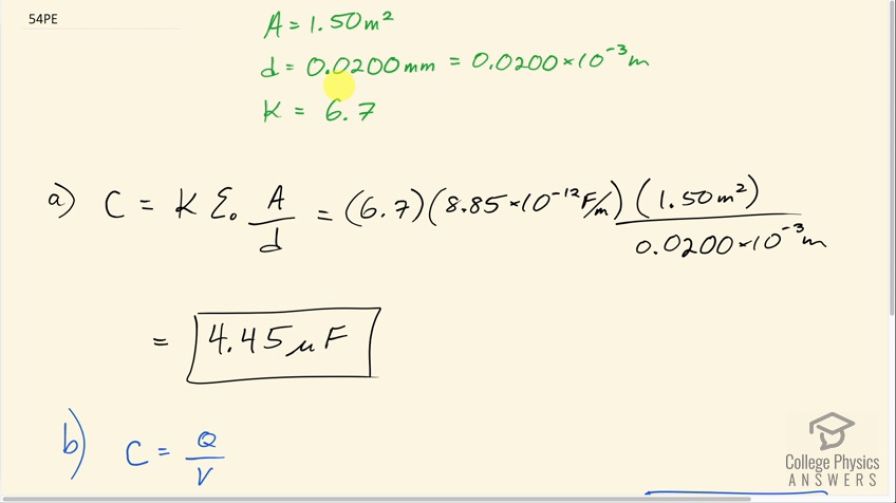 54PE
A = 1.50 m²
d = 0.0200 mm = 0.0200 × 10⁻³ m
K = 6.7
a) C = K ε₀ A/d = (6.7)(8.85 × 10⁻¹² F/m) (1.50 m²)/0.0200 × 10⁻³ m
= 4.45 μF
b) C = Q/V
College Physics
ANSWERS